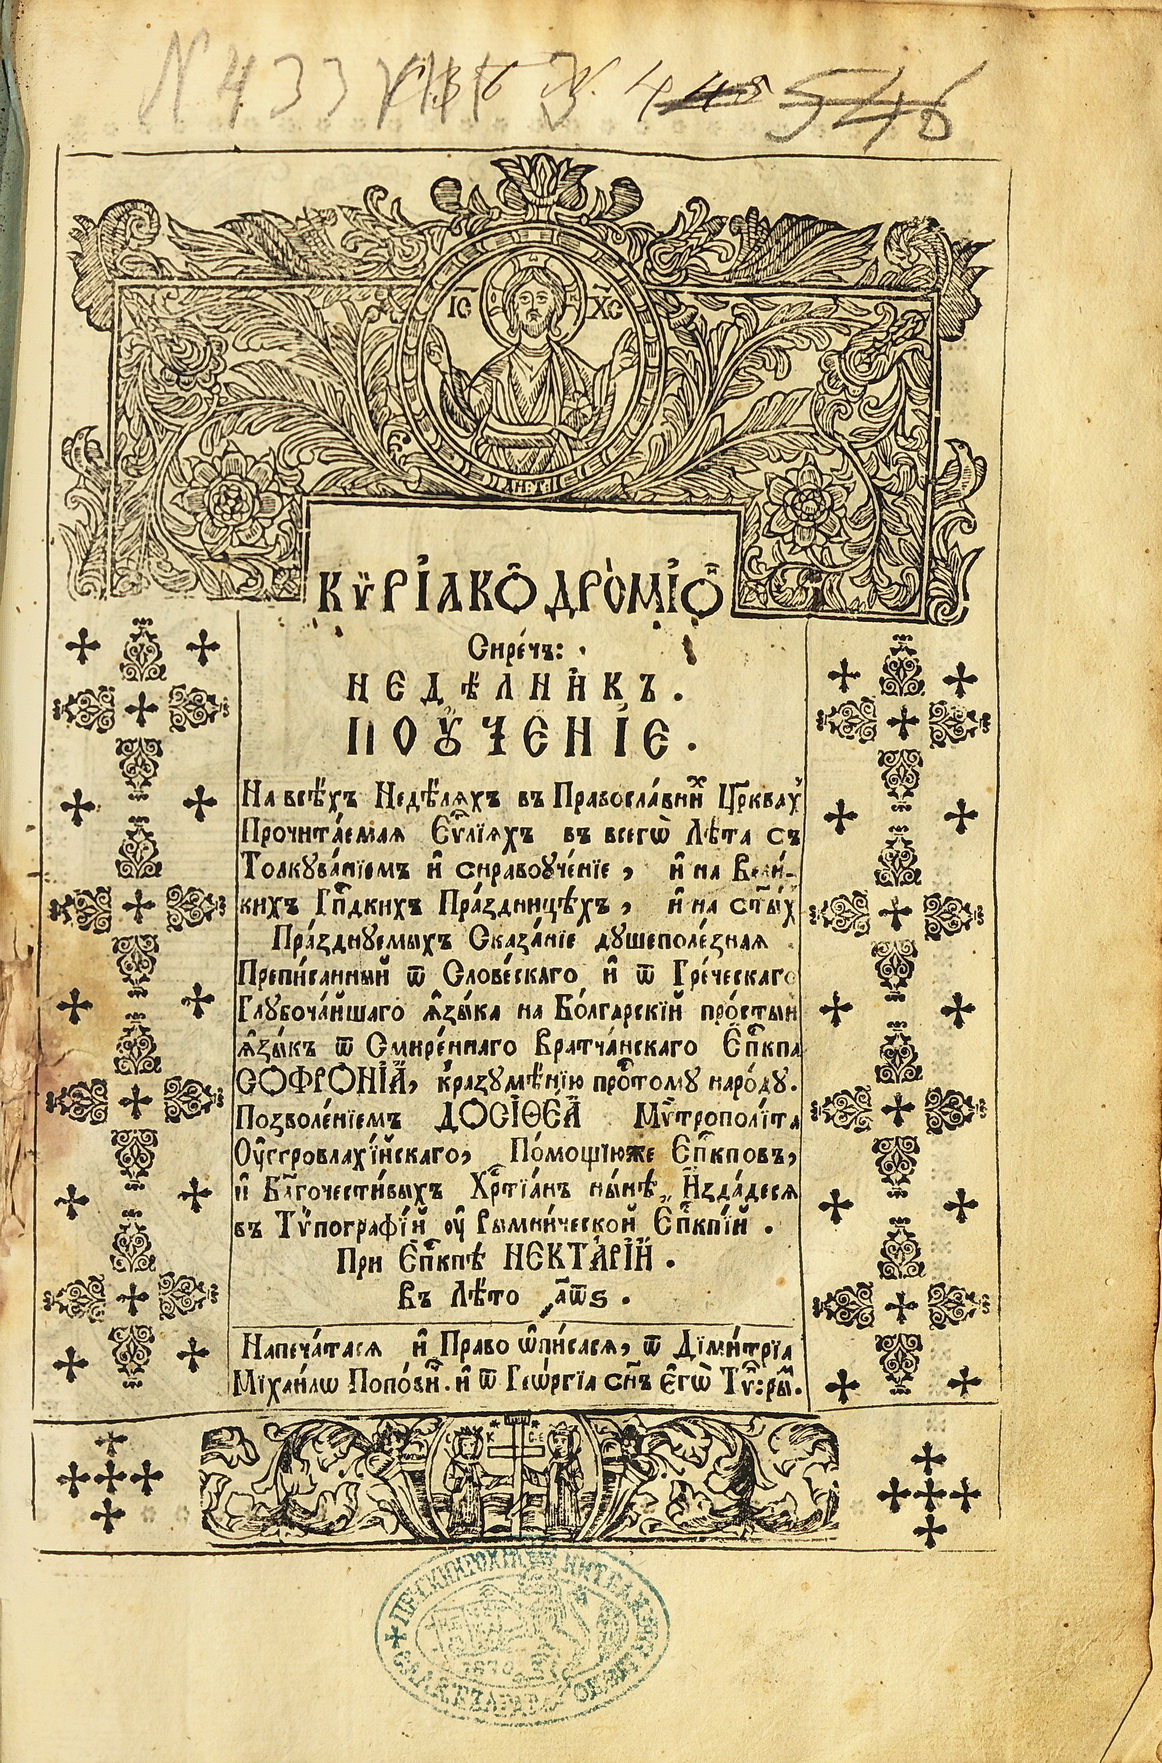 N 433
546
ІС ХС
КѴРІАКОДРОМІОⷩ
Сирѣчъ:
НЕДѢЛНИКЪ.
ПОꙋЧЕНІЕ.
На всѣхъ Недѣлѧхъ въ Правосла́внⷯи Цр҃квахъ
Прочита́емаѧ Еѵⷢ҇лїѧхъ въ всегѡ̀ Лѣ́та съ
Толкꙋва́нїемъ и҆ снравоꙋче́нїе, и҆ на Вели-
кихъ Гпⷭ҇дкихъ Пра́здницѣхъ, и҆ на ст҃ы́хъ
Пра́зднꙋемыхъ Сказа́нїе дꙋшеполе́знаѧ
Препи́санный ѿ Слове́скаго, и҆ ѿ Гре́ческаго
Глꙋбоча́йшаго ꙗ҆зы́ка на Бо́лгарскїй про́стый
ꙗ҆зы́къ ѿ Смире́ннаго Вратча́нскаго Епⷭ҇кпа
СОФРОНІА, кразꙋмѣ́нїю проⷭ҇томꙋ наро́дꙋ.
Позволе́нїемъ ДОСІѲЕА Мѷтрополі́та
Оу҆ггровлахі́йскаго, По́мощїюже Епⷭ҇кповъ,
и҆ Бл҃гочести́выхъ Хрⷭ҇тїа́нъ ны́нѣ И҆зда́десѧ
въ Тѷпографі́й оу҆ Ры́мнической Епⷭ҇кпі́й.
При Епⷭ҇кпѣ НЕКТА́РІЙ.
Въ Лѣ́то ҂аѿѕ.
Напеча́тасѧ и҆ Пра́во ѡ҆пи́сасѧ, ѿ Дїми́трїа
Мїха́илѡ Попо́виⷱ. и҆ ѿ Геѡ́ргїа сн҃ъ є҆гѡ̀ Тѷⷫ:рыⷨ.